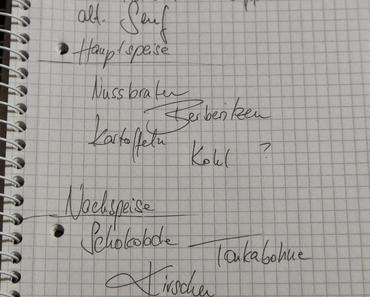 alt. Senf
Hauptspeise
Nussbraten
Berberitzen
Kartoffeln
Kohl ?
Nachspeise
Schokolade
Tonkabohne
Kirschen